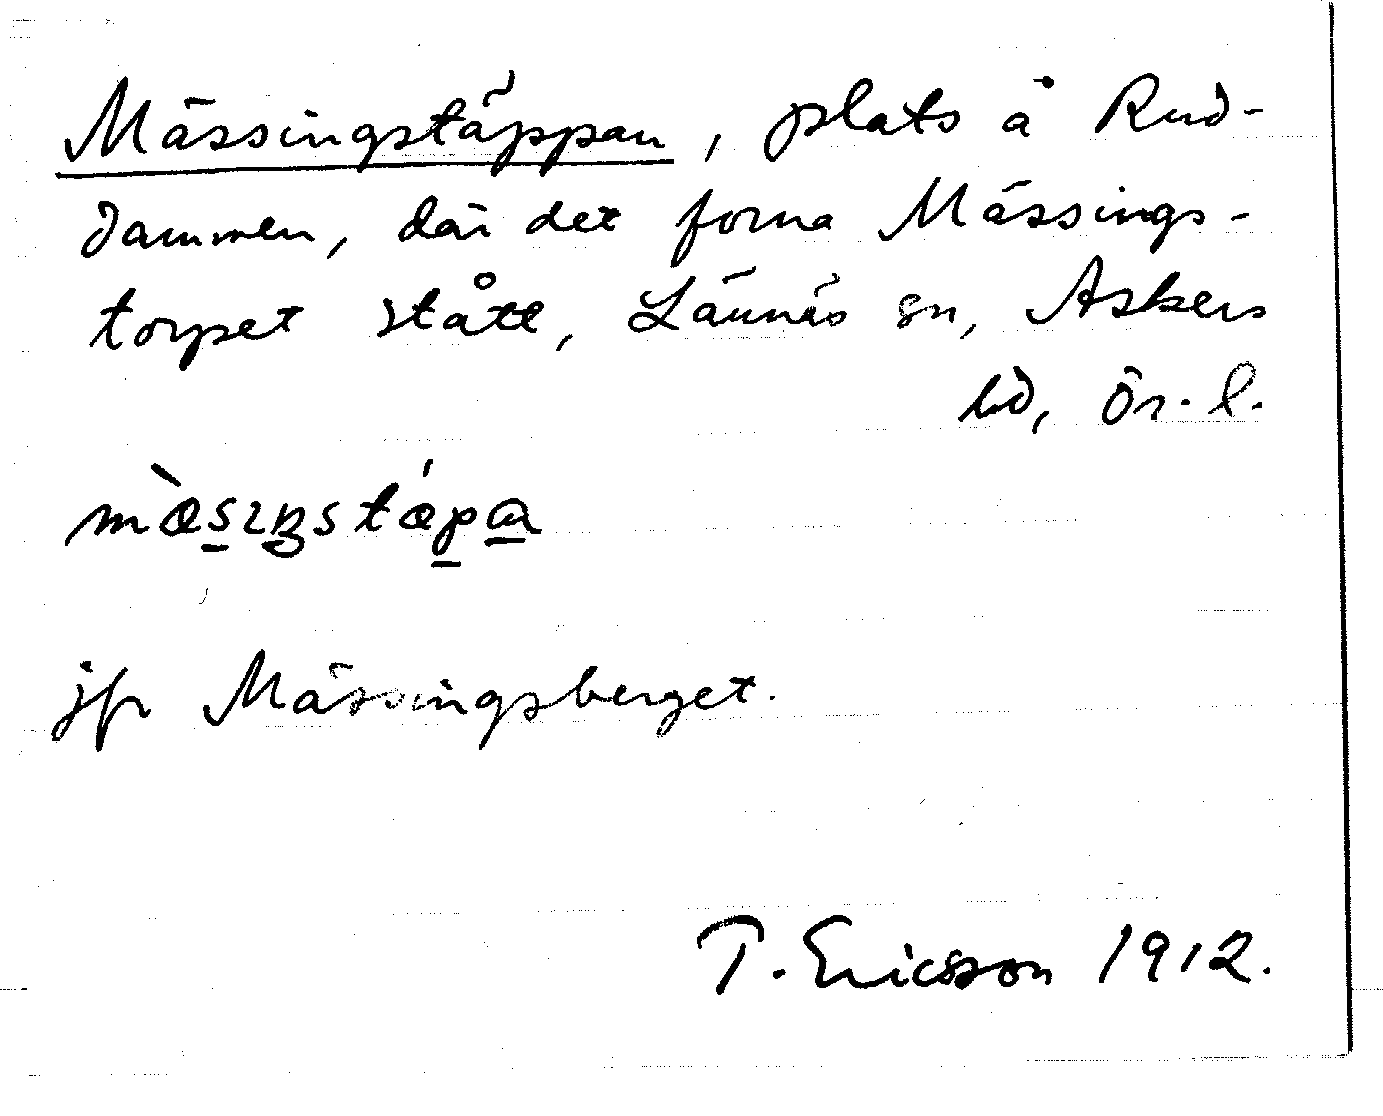 Mässingstäppan, plats å Rud-
dammen, där det forna Mässings-
torpet stått, Lännäs sn, Askers
hd, Ör. l.
mæ̀sıŋstǽpa
jfr Mässingsberget.
T. Ericsson 1912.